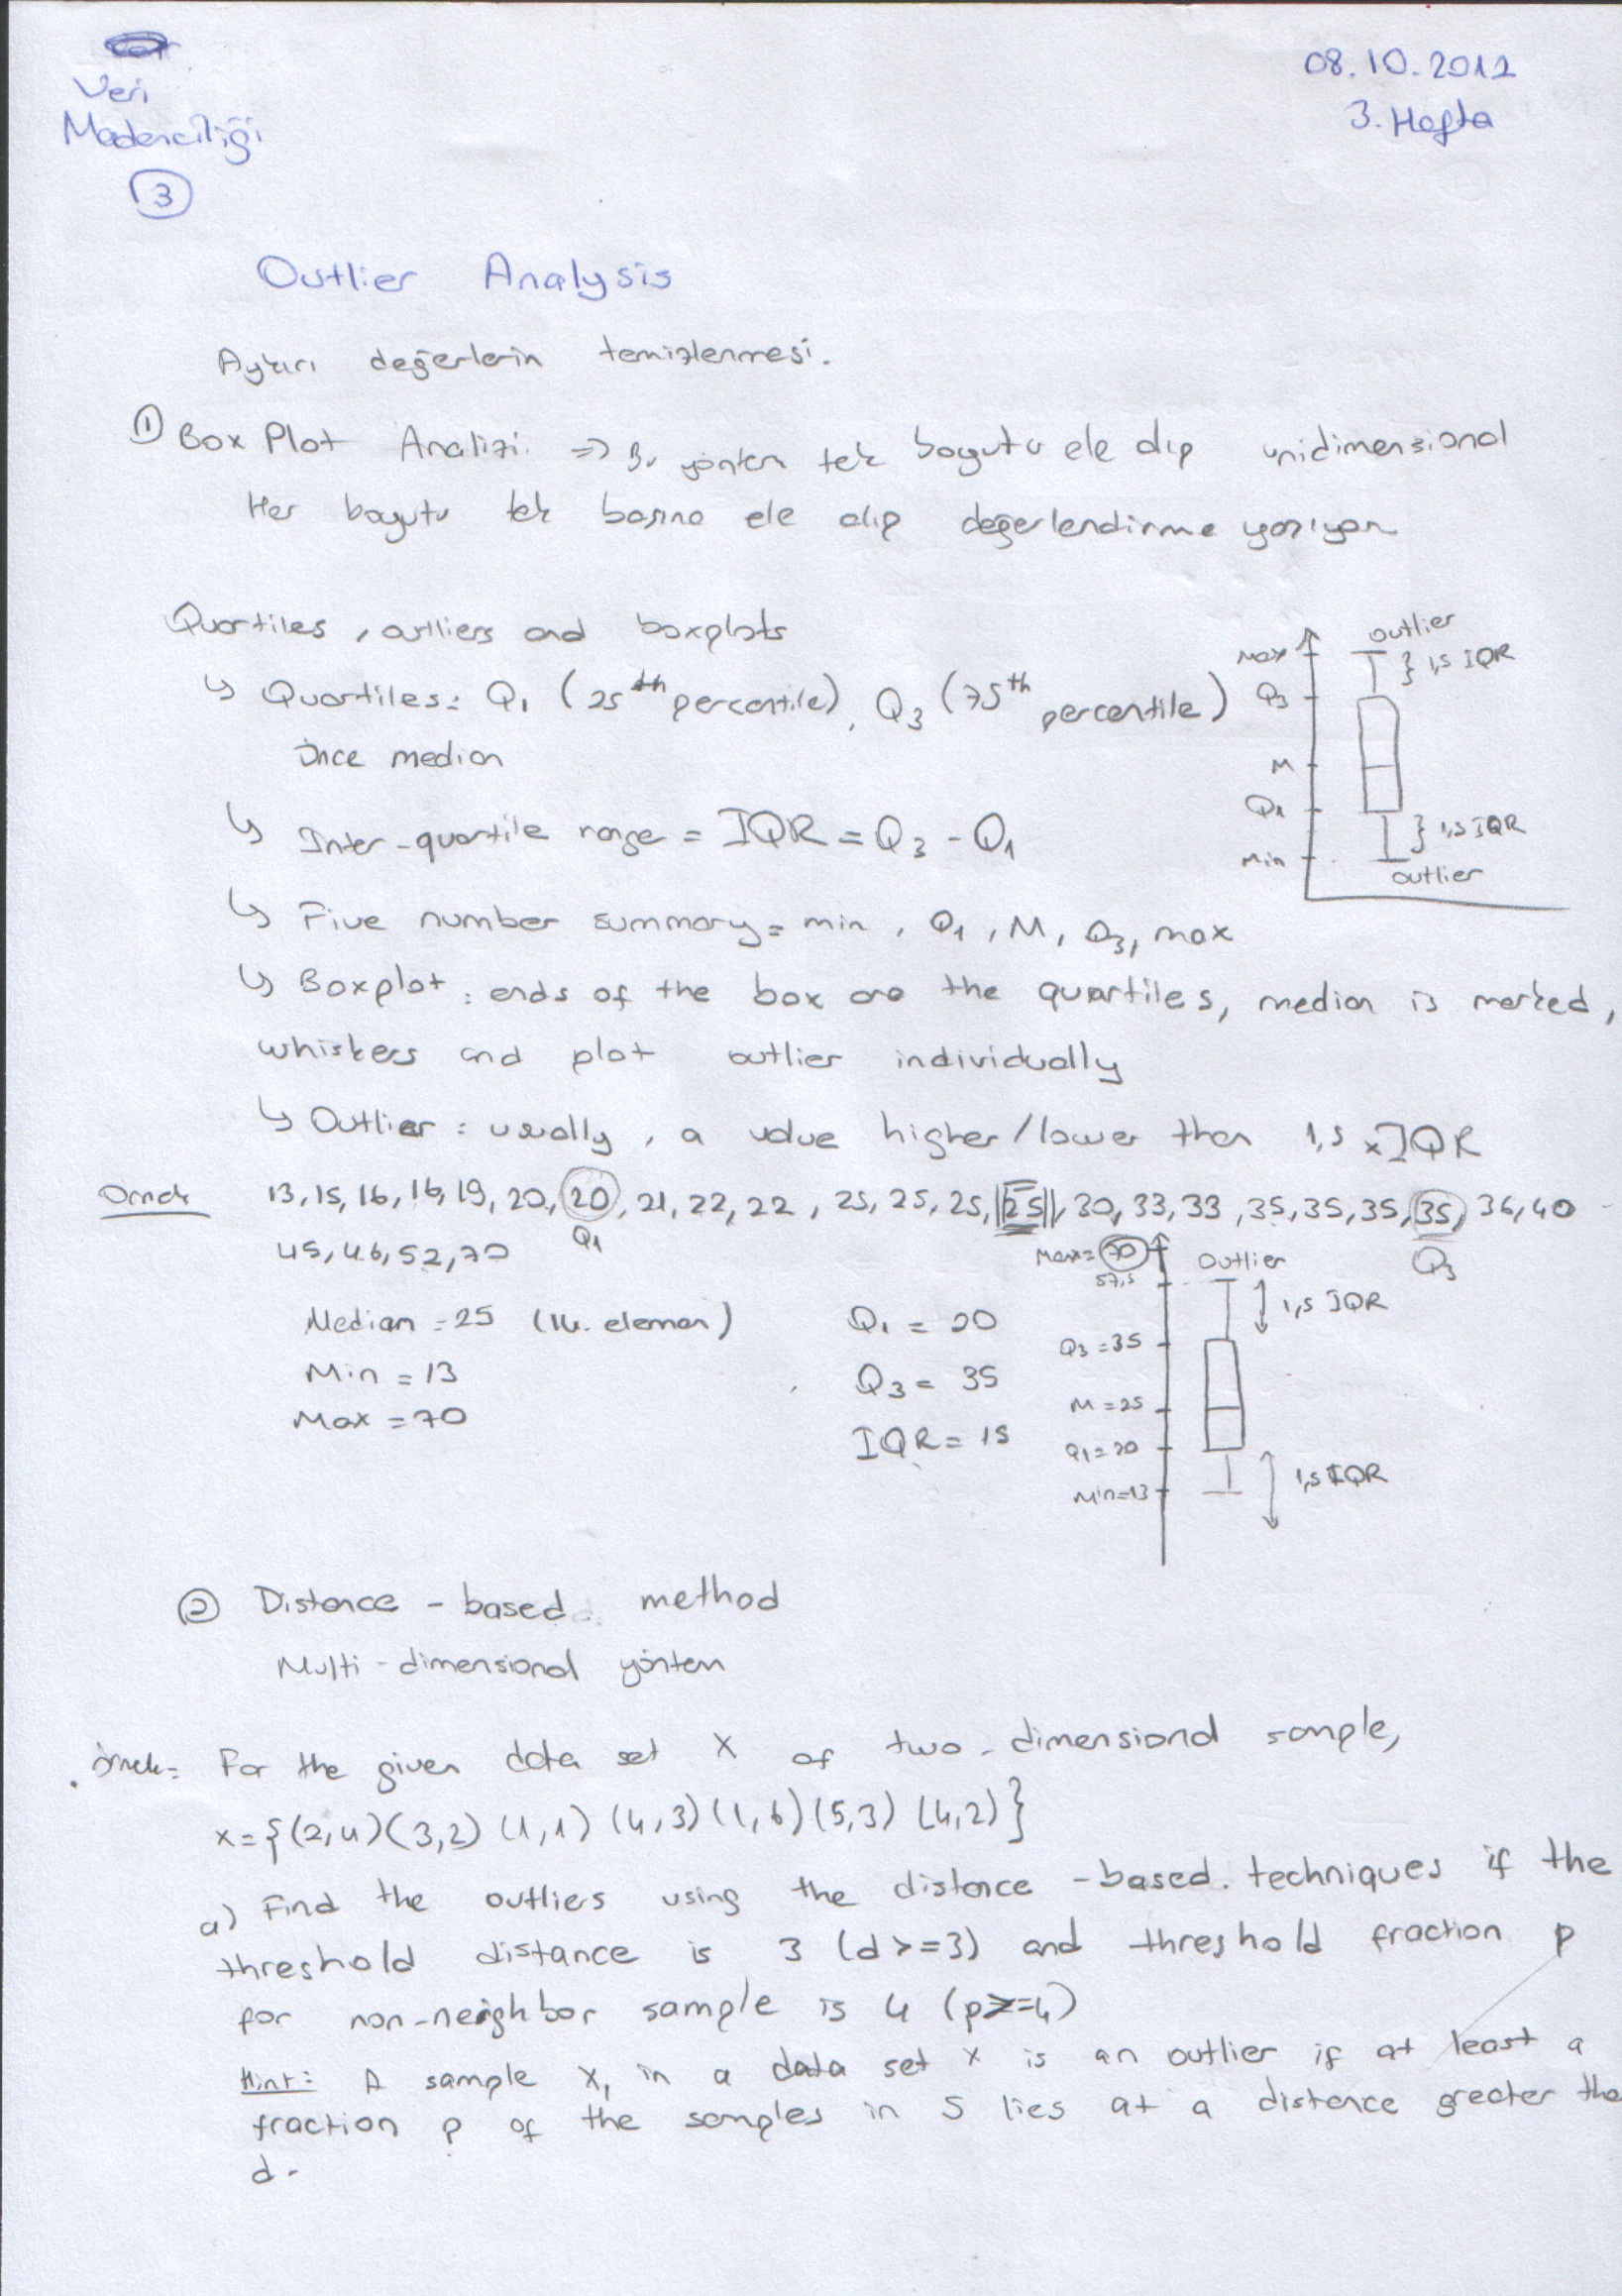 Veri
Madenciliği
3
08.10.2012
3. Hafta
Outlier Analysis
Aykırı değerlerin temizlenmesi.
① Box Plot Analizi. => Bu yöntem tek boyutu ele alıp unidimensional
Her boyutu tek başına ele alıp değerlendirme yapıyor
Quartiles, outliers and boxplots
↳ Quartiles: Q1 (25th percentile), Q3 (75th percentile)
Önce median
↳ Inter-quartile range = IQR = Q3 - Q1
↳ Five number summary = min, Q1, M, Q3, max
↳ Boxplot: ends of the box are the quartiles, median is marked,
whiskers and plot outlier individually
↳ Outlier: usually, a value higher/lower than 1,5 x IQR
outlier
Max } 1,5 IQR
Q3
M
Q1
} 1,5 IQR
Min
outlier
Örnek 13, 15, 16, 16, 19, 20, 20, 21, 22, 22, 25, 25, 25, 25, 30, 33, 33, 35, 35, 35, 35, 36, 40
45, 46, 52, 70
Q1
Q3
Median = 25 (14. eleman)
Min = 13
Max = 70
Q1 = 20
Q3 = 35
IQR = 15
Max = 70 Outlier
57,5
1,5 IQR
Q3 = 35
M = 25
Q1 = 20
1,5 IQR
Min = 13
② Distance - based method
Multi-dimensional yöntem
Örnek= For the given data set X of two-dimensional sample,
x = {(2,4) (3,2) (1,1) (4,3) (1,6) (5,3) (4,2)}
a) Find the outliers using the distance -based. techniques if the
threshold distance is 3 (d>=3) and threshold fraction p
for non-neighbor sample is 4 (p>=4)
Hint: A sample x, in a data set x is an outlier if at least a
fraction p of the samples in S lies at a distance greater tha
d.